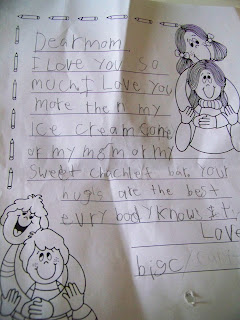 Dear mom
I LOVE YOU SO
much. I LOVE YOU
more then my
Ice cream cone
or my m&m or my
Sweet chachlet bar. Your
hugs are the best
evury body knows It.
Love